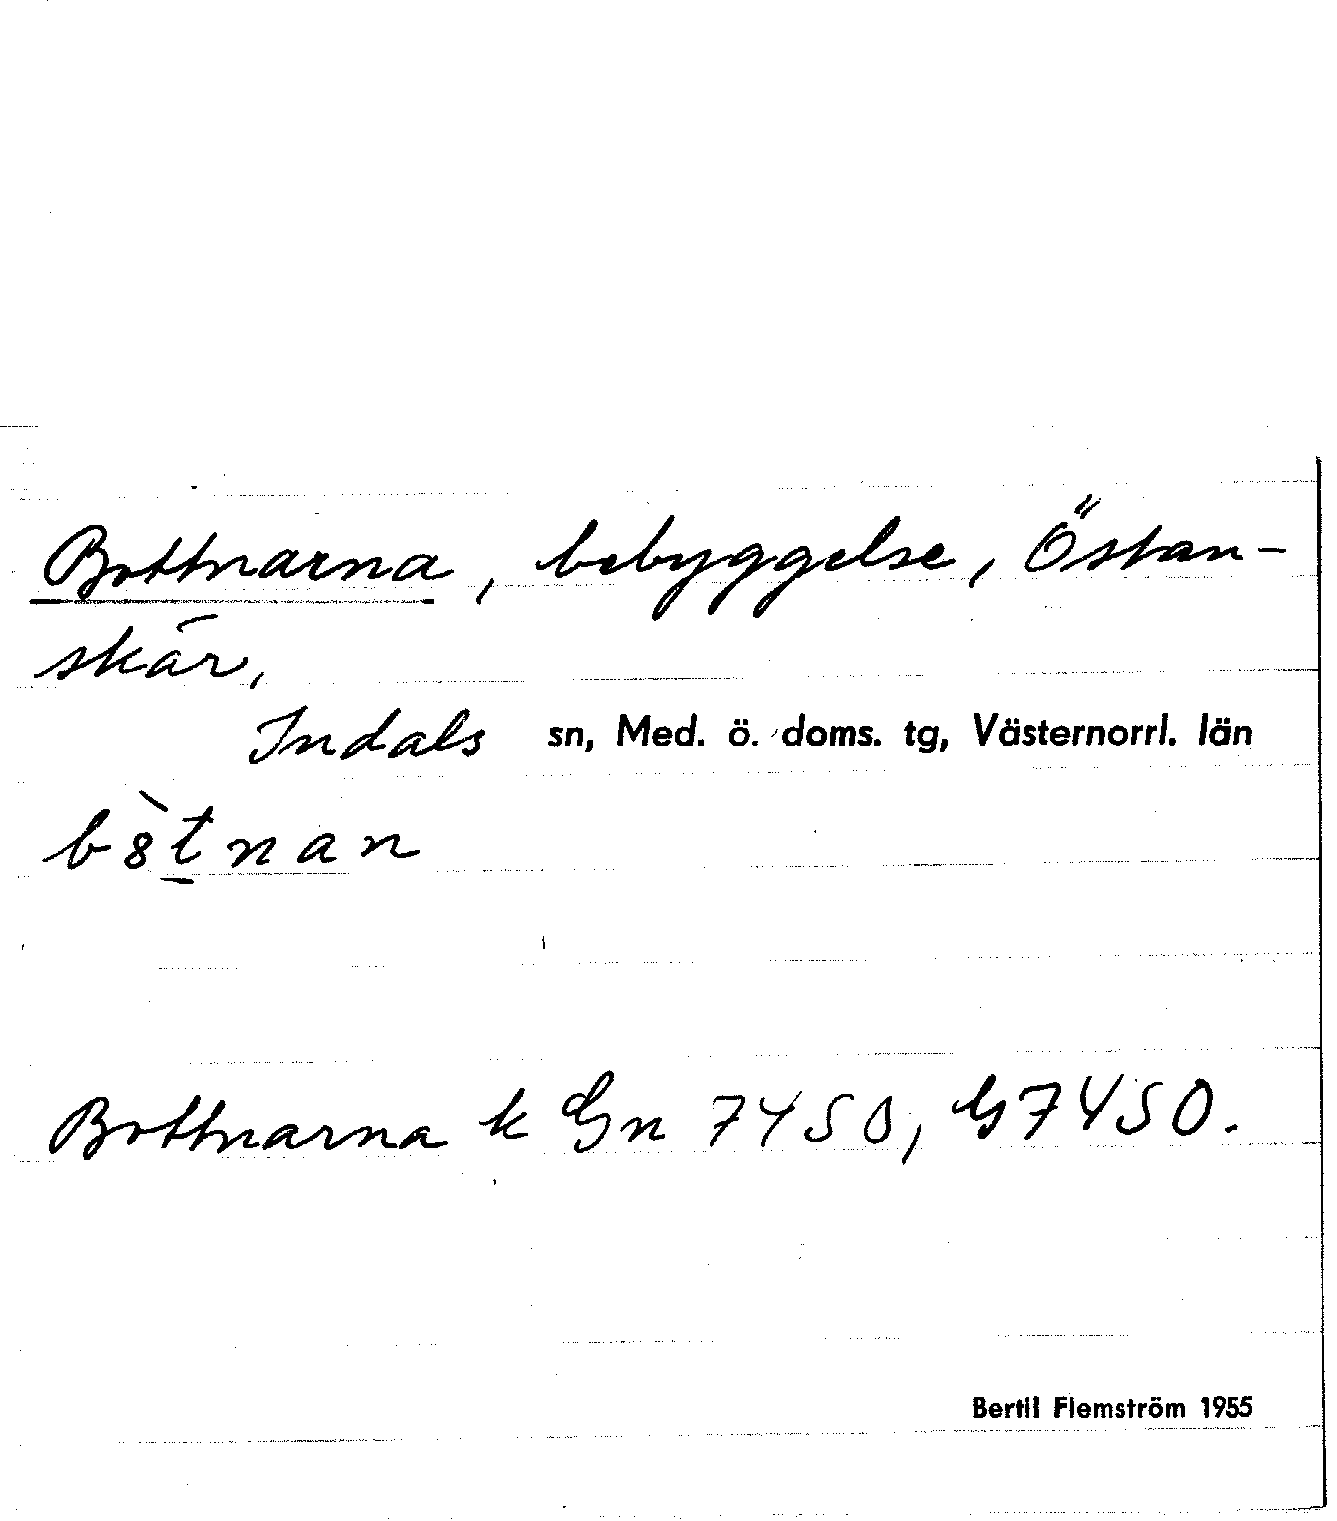 Bottnarna, bebyggelse, Östan-
skär,
Indals sn, Med. ö. doms. tg, Västernorrl. län
b8̀t̲nan
Bottnarna k Gn 7450, G7450.
Bertil Flemström 1955